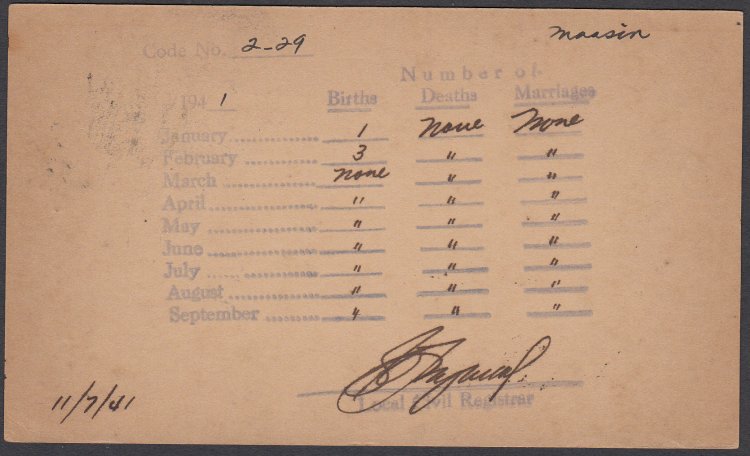 Maasin
Code No. 2-29
Number of
1941 Births Deaths Marriages
January 1 None None
February 3 " "
March None " "
April " " "
May " " "
June " " "
July " " "
August " " "
September " " "
Local Civil Registrar
11/7/41